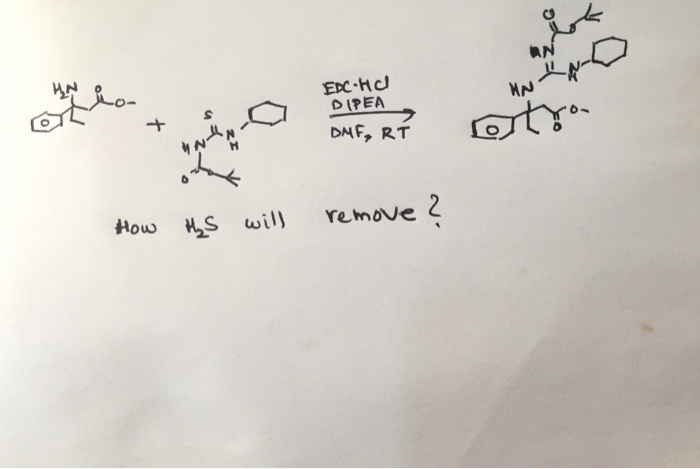 H₂N O O-
+
S HN N H O O
EDC·HCl
DIPEA
DMF, RT
O O N N H HN O O-
How H₂S will remove?